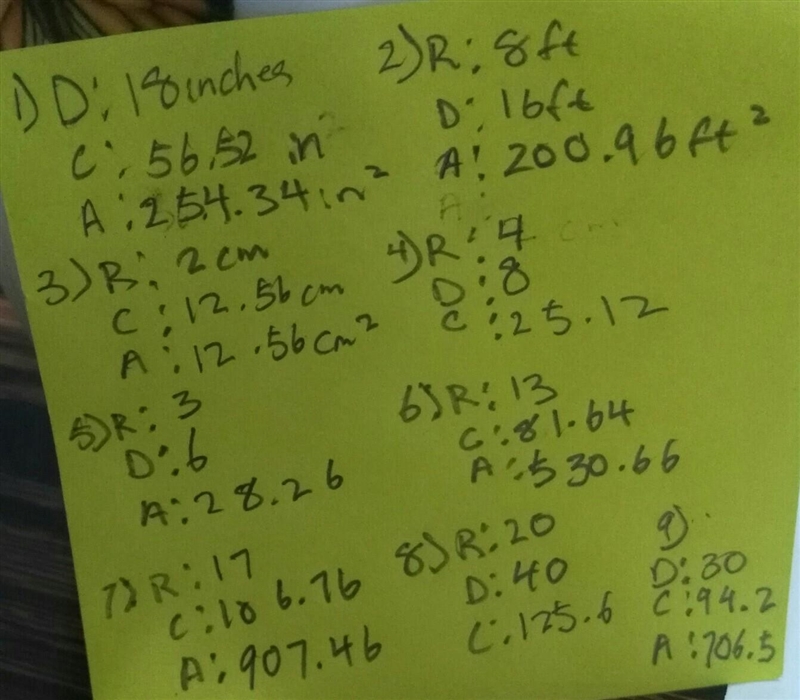 1) D: 18 inches
C: 56.52 in
A: 254.34 in²
2) R: 8ft
D: 16ft
A: 200.96 ft²
3) R: 2 cm
C: 12.56 cm
A: 12.56 cm²
4) R: 4
D: 8
C: 25.12
5) R: 3
D: 6
A: 28.26
6) R: 13
C: 81.64
A: 530.66
7) R: 17
C: 106.76
A: 907.46
8) R: 20
D: 40
C: 125.6
9)
D: 30
C: 94.2
A: 706.5